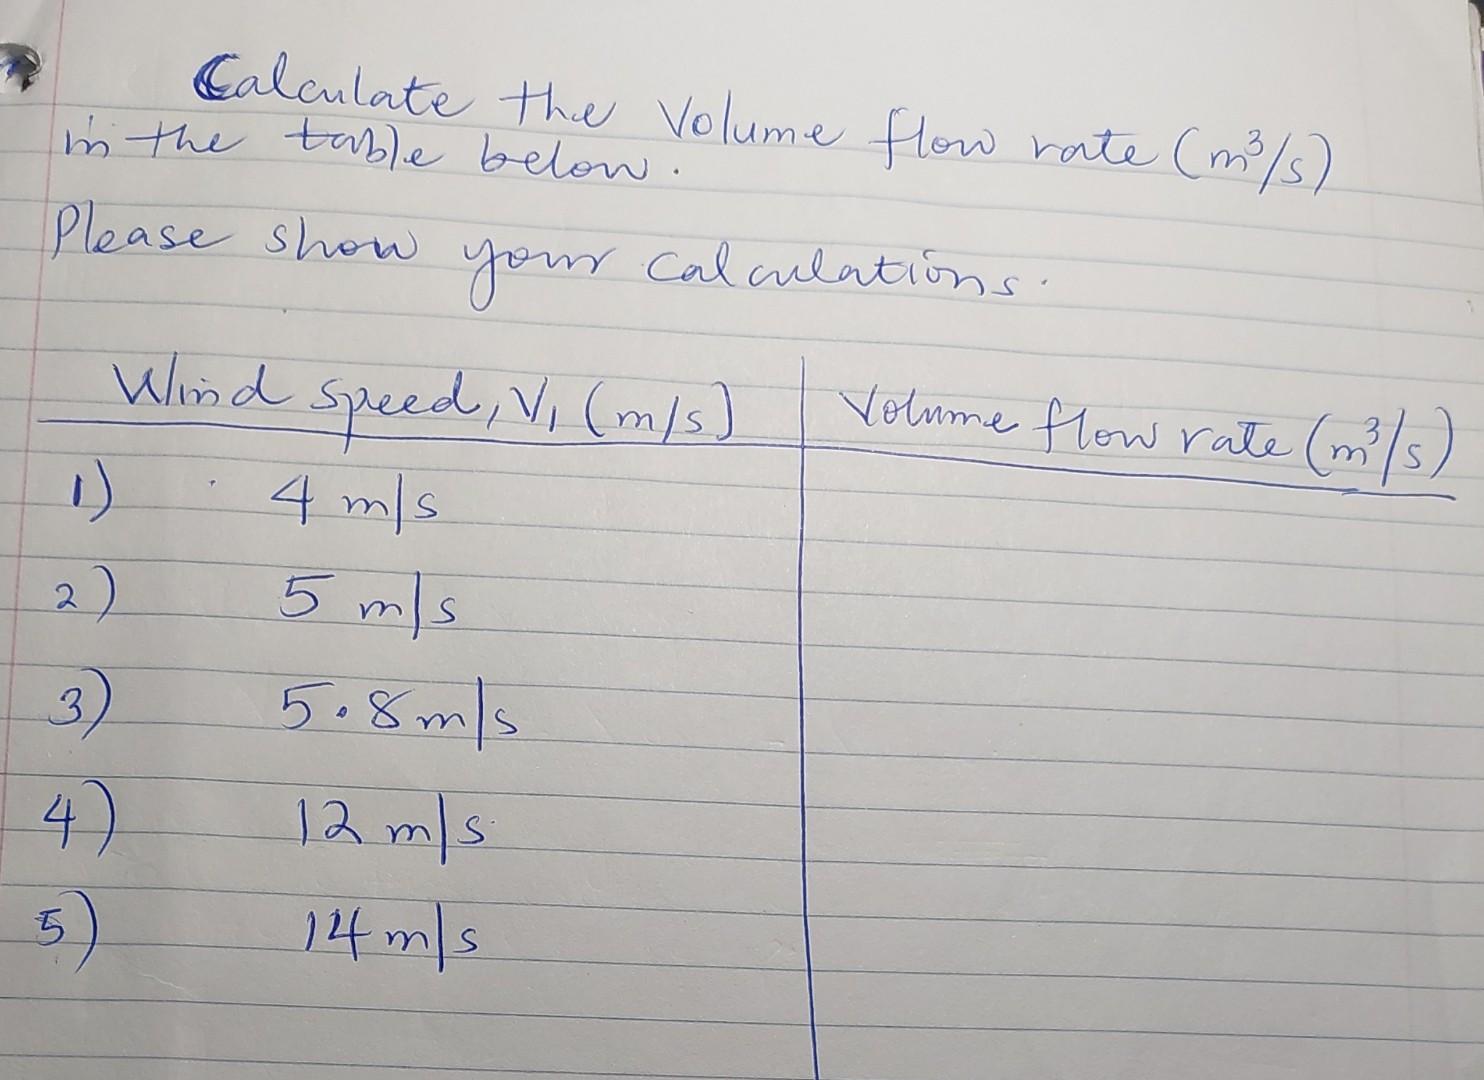 Calculate the Volume flow rate (m³/s)
in the table below.
Please show your calculations.
Wind speed, V₁ (m/s) Volume flow rate (m³/s)
1) 4 m/s
2) 5 m/s
3) 5.8 m/s
4) 12 m/s
5) 14 m/s